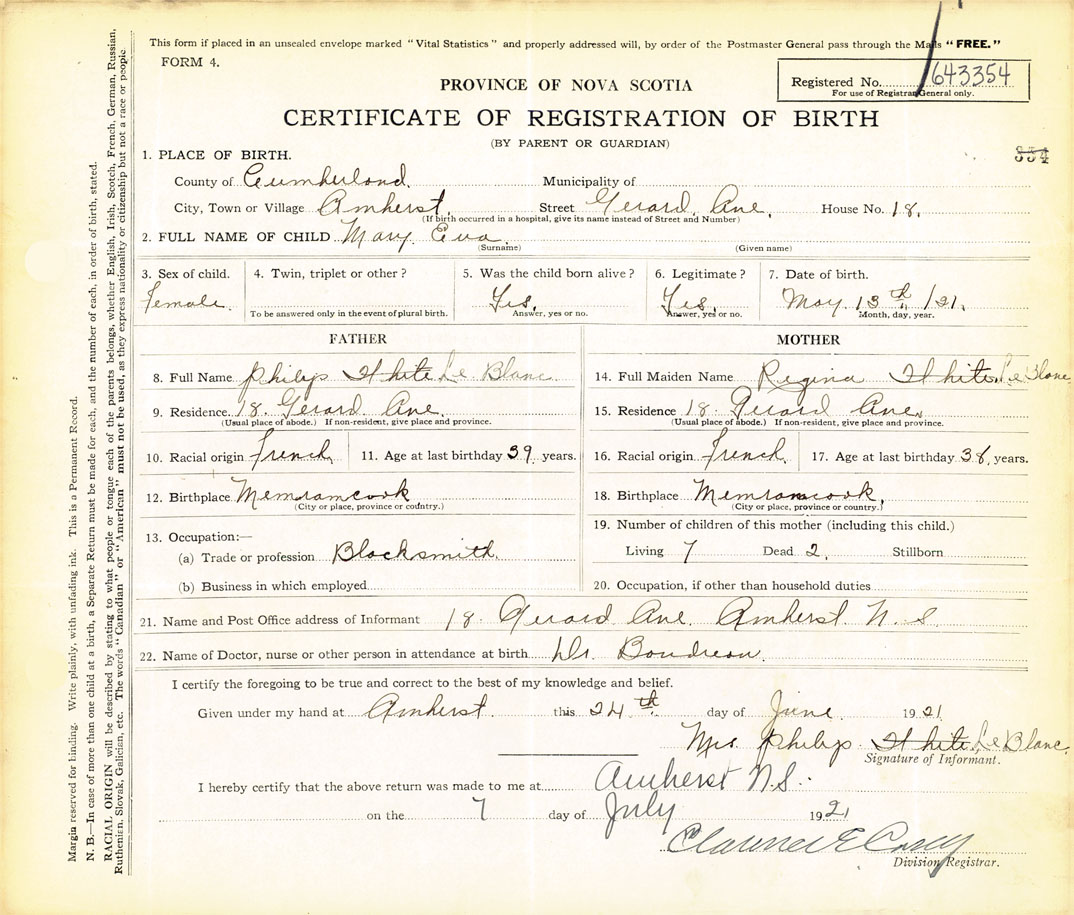 This form if placed in an unsealed envelope marked "Vital Statistics" and properly addressed will, by order of the Postmaster General pass through the Mails "FREE."
FORM 4.
Registered No. 643354
For use of Registrar General only.
PROVINCE OF NOVA SCOTIA
CERTIFICATE OF REGISTRATION OF BIRTH
(BY PARENT OR GUARDIAN)
334
1. PLACE OF BIRTH.
County of Cumberland. Municipality of
City, Town or Village Amherst, Street Gerard Ave, House No. 18.
(If birth occurred in a hospital, give its name instead of Street and Number)
2. FULL NAME OF CHILD Mary Eva
(Surname) (Given name)
3. Sex of child. 4. Twin, triplet or other? 5. Was the child born alive? 6. Legitimate? 7. Date of birth.
female. Yes, Yes, May 13th /21.
To be answered only in the event of plural birth. Answer, yes or no. Answer, yes or no. Month, day, year.
FATHER
8. Full Name Philip White Le Blanc
9. Residence 18 Gerard Ave.
(Usual place of abode.) If non-resident, give place and province.
10. Racial origin french 11. Age at last birthday 39 years.
12. Birthplace Memramcook,
(City or place, province or country.)
13. Occupation:—
(a) Trade or profession Blacksmith.
(b) Business in which employed
MOTHER
14. Full Maiden Name Regina White Le Blanc
15. Residence 18 Gerard Ave,
(Usual place of abode.) If non-resident, give place and province.
16. Racial origin french 17. Age at last birthday 38, years.
18. Birthplace Memramcook,
(City or place, province or country.)
19. Number of children of this mother (including this child.)
Living 7 Dead 2. Stillborn
20. Occupation, if other than household duties
21. Name and Post Office address of Informant 18 Gerard Ave. Amherst N. S
22. Name of Doctor, nurse or other person in attendance at birth Dr. Boudreau.
I certify the foregoing to be true and correct to the best of my knowledge and belief.
Given under my hand at Amherst. this 24th day of June. 1921
Mrs Philip White Le Blanc
Signature of Informant.
I hereby certify that the above return was made to me at Amherst N.S.
on the 7 day of July 1921
Clarence E Casey
Division Registrar.
Margin reserved for binding. Write plainly, with unfading ink. This is a Permanent Record.
N. B.—In case of more than one child at a birth, a Separate Return must be made for each, and the number of each, in order of birth, stated.
RACIAL ORIGIN will be described by stating to what people or tongue each of the parents belongs, whether English, Irish, Scotch, French, German, Russian,
Ruthenian, Slovak, Galician, etc. The words "Canadian" or "American" must not be used, as they express nationality or citizenship but not a race or people.